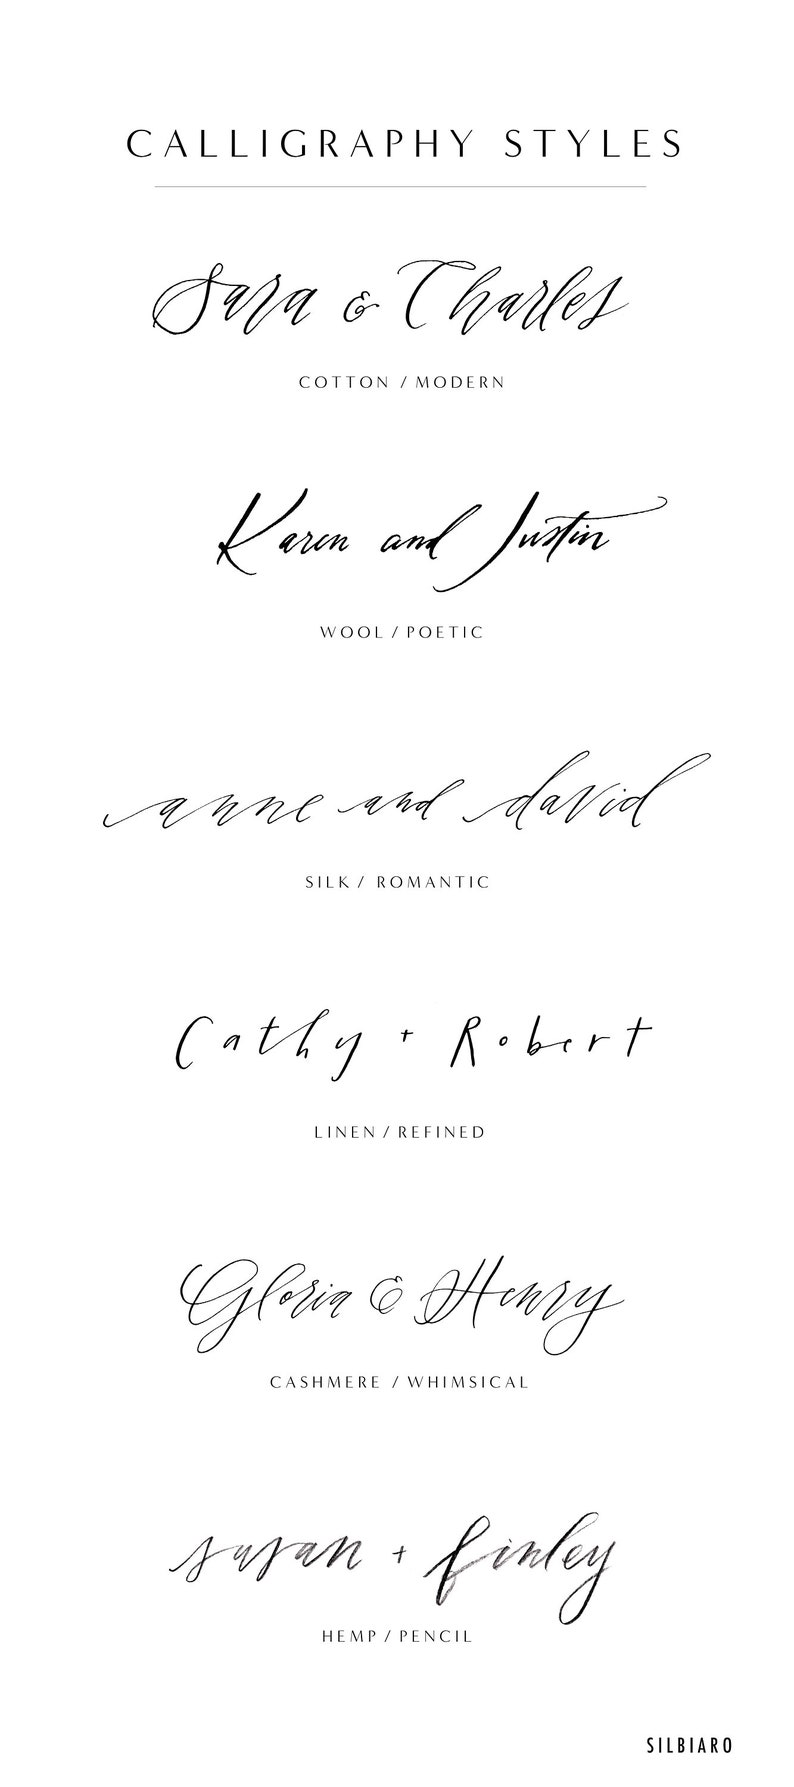 CALLIGRAPHY STYLES
Sara & Charles
COTTON / MODERN
Karen and Justin
WOOL / POETIC
anne and david
SILK / ROMANTIC
Cathy + Robert
LINEN / REFINED
Gloria & Henry
CASHMERE / WHIMSICAL
susan + finley
HEMP / PENCIL
SILBIARO